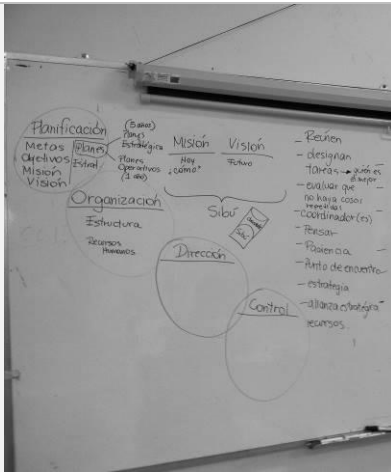 Planificación
Metas
Objetivos
Misión
Visión
Planes
Estrat.
(5 años)
Planes
Estratégico
Planes
Operativos
(1 año)
Misión
Hoy
¿cómo?
Visión
Futuro
Sibú
Organización
Estructura
Recursos
Humanos
Dirección
Control
- Reúnen
- designan
tareas → quién es
el mejor
- evaluar que
no haya cosas
repetidas
- coordinador(es)
- Pensar
- Paciencia
- Punto de encuentro
- estrategia
- alianza estratégica
recursos